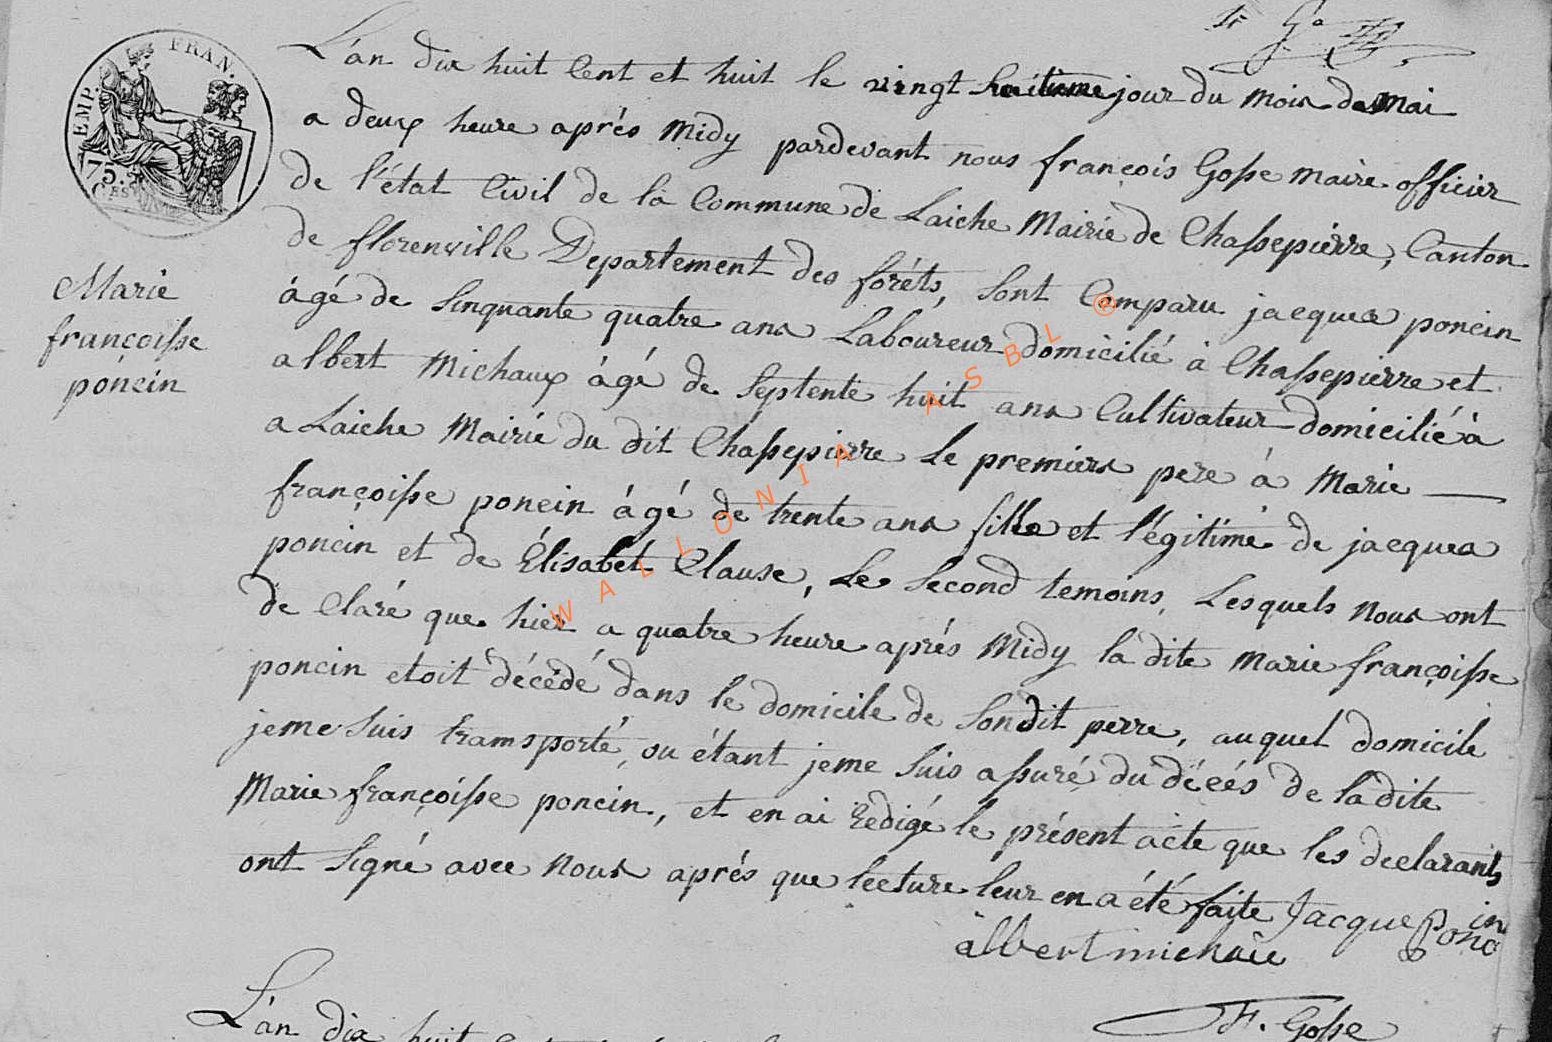 EMP. FRAN.
75.
CES
L'an dix huit Cent et huit le vingt huitieme jour du mois de Mai
a deux heure aprés Midy pardevant nous françois Gosse Maire officier
de l'état Civil de la Commune de Laiche Mairie de Chassepierre, Canton
de florenville Departement des foréts, sont Comparu jacques poncin
ágé de Sinquante quatre ans Laboureur domicilié à Chassepierre et
albert Michaux ágé de Septente huit ans Cultivateur domicilié à
a Laiche Mairie du dit Chassepierre Le premiers pere à Marie
françoisse poncin ágé de trente ans fille et l'égitime de jacques
poncin et de Élisabet Clause, Le Second temoins, Lesquels nous ont
de Claré que hier a quatre heure aprés Midy la dite Marie françoisse
poncin etoit décédé dans le domicile de Sondit perre, auquel domicile
jeme Suis tramsporté, ou étant jeme Suis assuré du décés de ladite
Marie françoisse poncin, et en ai redigé le présent acte que les declarants
ont Signé avec nous aprés que lecture leur en a été faite Jacque Poncin
albert michaie
F. Gosse
Marie
françoisse
poncin
L'an dix huit
WALLONIA ASBL ®